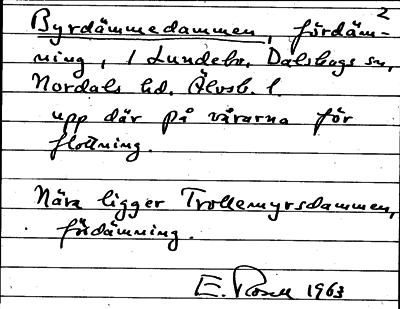 2
Byrdämmedammen, fördäm-
ning, i Lundebn, Dalskogs sn,
Nordals hd. Älvsb. l.
upp där på vårarna för
flottning.
Nära ligger Trollemyrsdammen,
fördämning.
E. Rosell 1963